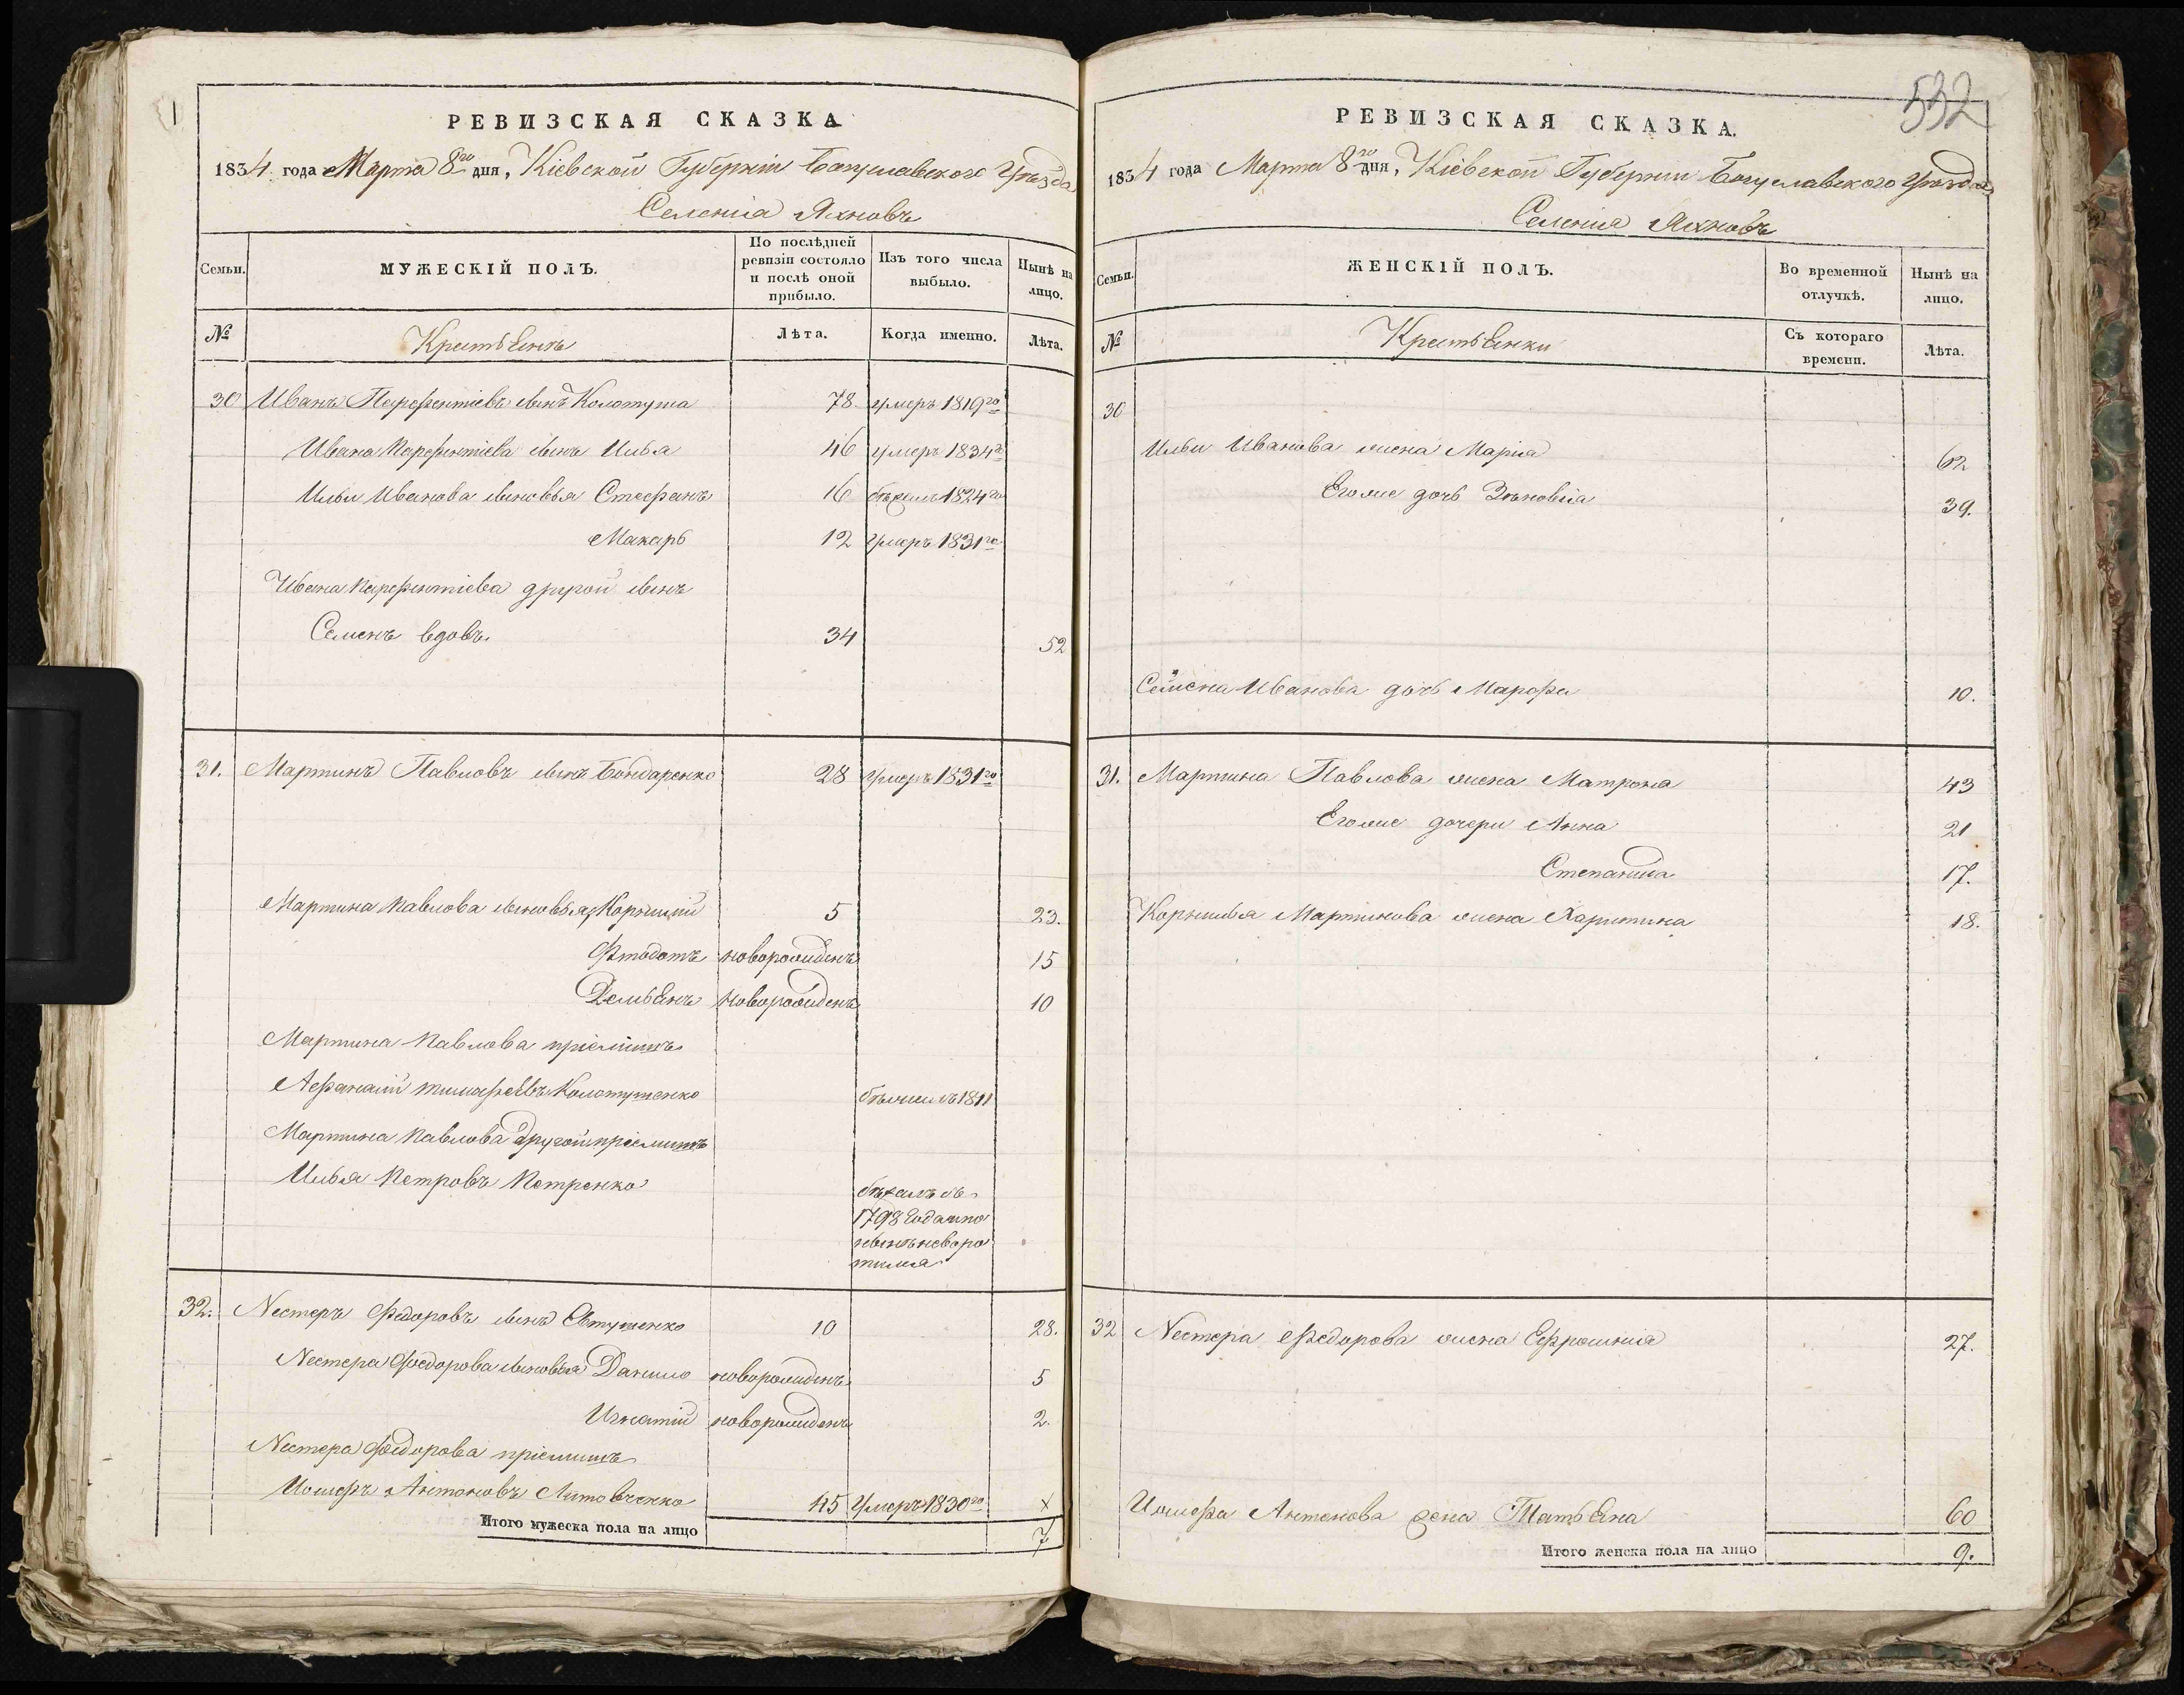 РЕВИЗСКАЯ СКАЗКА
1834 года Марта 8го дня, Кіевской Губерніи Богуславского Уѣзда
Селенія Яхновъ
Семьи.
МУЖЕСКІЙ ПОЛЪ.
По послѣдней ревизіи состояло и послѣ оной прибыло.
Изъ того числа выбыло.
Нынѣ на лицо.
№
Крестьянъ
Лѣта.
Когда именно.
Лѣта.
30 Иванъ Парфентіевъ сынъ Колотуша 78 умеръ 1819го
Ивана Парфентіева сынъ Илья 46 умеръ 1834го
Ильи Иванова сыновья Стефанъ 16 бѣжалъ 1824го
Макаръ 12 умеръ 1831го
Ивана Парфентіева другой сынъ
Семенъ вдовъ. 34 52
31. Мартинъ Павловъ сынъ Бондаренко 28 умеръ 1831го
Мартина Павлова сыновья, Корнилій 5 23.
Фтодотъ новорожденъ 15
Демьянъ новорожденъ 10
Мартина Павлова пріемишъ
Афанасій Тимофеевъ Колотушенко бѣжилъ 1811
Мартина Павлова другой пріемишъ
Илья Петровъ Петренко бѣжалъ съ
1798 года и по
нынѣ не воро
тился
32. Нестеръ Федоровъ сынъ Евтушенко 10 28.
Нестера Федорова сыновья Данило новорожденъ 5
Игнатій новорожденъ 2.
Нестера Федорова пріемишъ
Иосифъ Антоновъ Литовченко 45 умеръ 1830го х
Итого мужеска пола на лицо 7
532
РЕВИЗСКАЯ СКАЗКА.
1834 года Марта 8го дня, Кіевской Губерніи Богуславского Уѣзда
Селенія Яхновъ
Семьи.
ЖЕНСКІЙ ПОЛЪ.
Во временной отлучкѣ.
Нынѣ на лицо.
№
Крестьянки
Съ котораго времени.
Лѣта.
30
Ильи Иванова жена Марія 62
Егоже дочь Зѣновія 39.
Семена Иванова дочь Марфа 10.
31. Мартина Павлова жена Матрона 43
Егоже дочери Анна 21
Степанида 17.
Корнилья Мартинова жена Харитина 18.
32 Нестера Федорова жена Ефросинія 27.
Иосифа Антонова жена Татьяна 60
Итого женска пола на лицо 9.